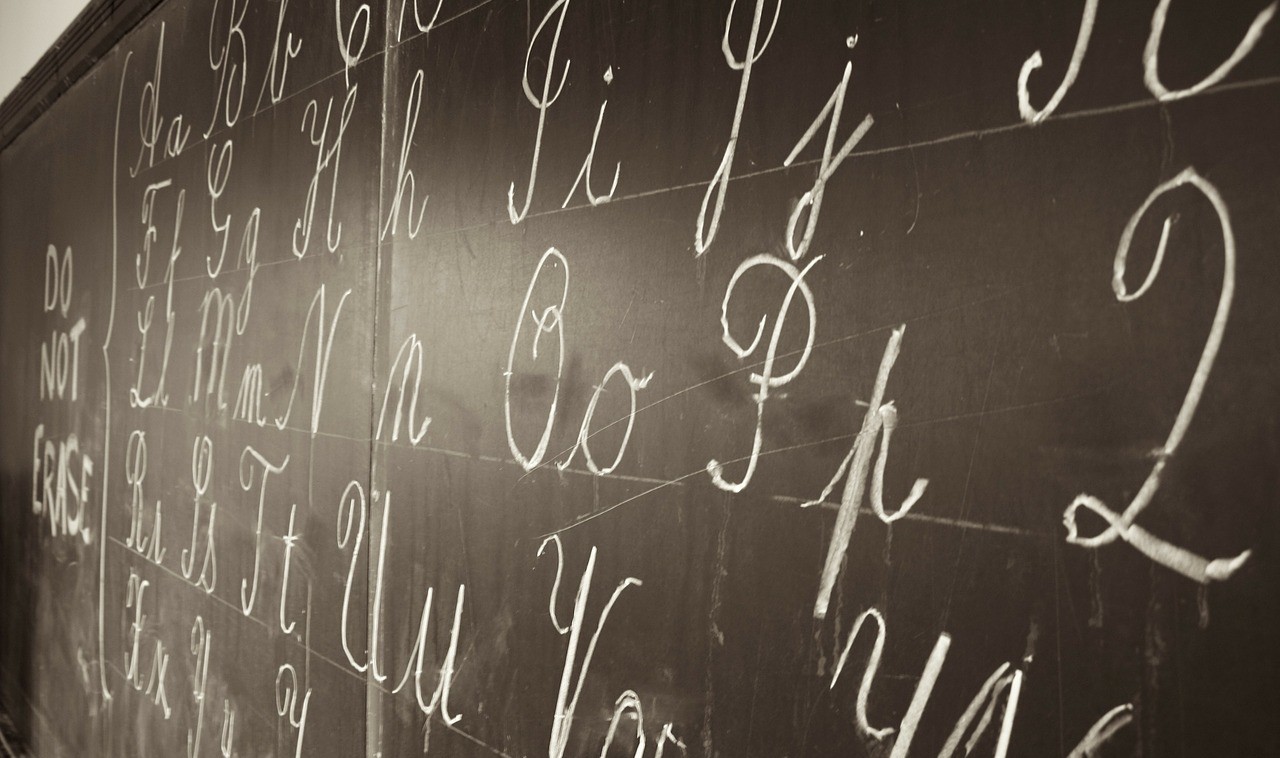 DO
NOT
ERASE
Aa Bb C
Ff Gg Hh Ii Jj
Ll Mm Nn Oo Pp Q
Rr Ss Tt Uu V
Xx Y